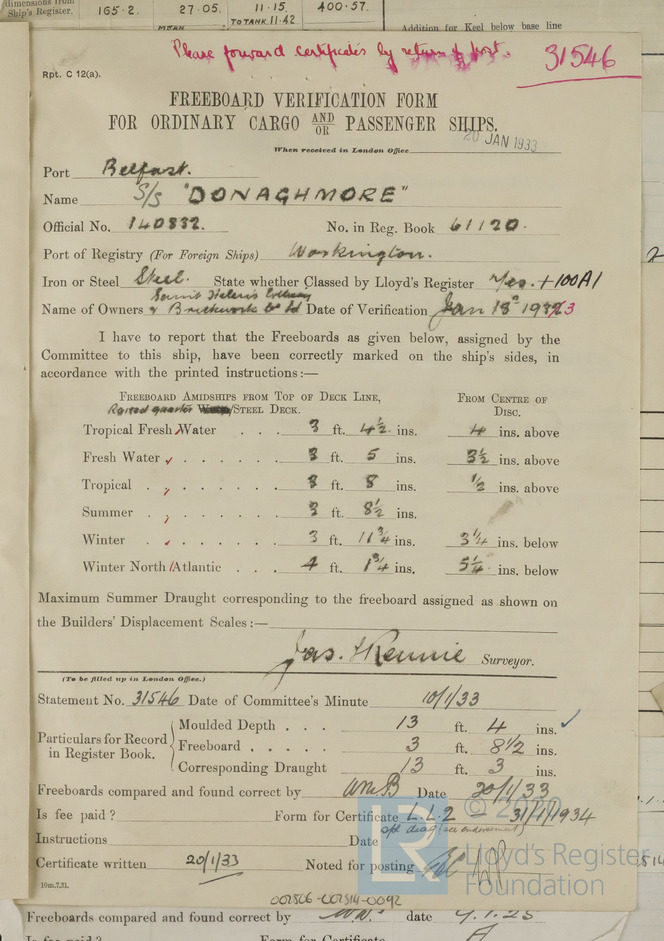 dimensions from
Ship's Register. 165·2. 27·05. 11·15. 400·57.
MEAN TO TANK 11·42.
Addition for Keel below base line
Please forward certificates by return of post. 31546
Rpt. C 12(a).
FREEBOARD VERIFICATION FORM
FOR ORDINARY CARGO AND/OR PASSENGER SHIPS.
When received in London Office 20 JAN 1933
Port Belfast.
Name S/S "DONAGHMORE"
Official No. 140832. No. in Reg. Book 61120.
Port of Registry (For Foreign Ships) Workington.
Iron or Steel Steel. State whether Classed by Lloyd's Register Yes. +100A1
Saint Helens Colliery
Name of Owners & Brickwork Co Ld Date of Verification Jan 18th 1933
I have to report that the Freeboards as given below, assigned by the
Committee to this ship, have been correctly marked on the ship's sides, in
accordance with the printed instructions:—
Freeboard Amidships from Top of Deck Line, From Centre of
Raised quarter /Steel Deck. Disc.
Tropical Fresh Water . . . 3 ft. 4½ ins. 4 ins. above
Fresh Water . . . . . . . 3 ft. 5 ins. 3½ ins. above
Tropical . . . . . . . 3 ft. 8 ins. ½ ins. above
Summer . . . . . . . 3 ft. 8½ ins.
Winter . . . . . . . 3 ft. 11¾ ins. 3¼ ins. below
Winter North Atlantic . . . 4 ft. 1¾ ins. 5¼ ins. below
Maximum Summer Draught corresponding to the freeboard assigned as shown on
the Builders' Displacement Scales:—
Jas. Rennie Surveyor.
(To be filled up in London Office.)
Statement No. 31546 Date of Committee's Minute 10/1/33
Particulars for Record in Register Book.
Moulded Depth . . . 13 ft. 4 ins. ✓
Freeboard . . . . . 3 ft. 8½ ins.
Corresponding Draught 13 ft. 3 ins.
Freeboards compared and found correct by WmB Date 20/1/33
Is fee paid? Form for Certificate L.L.2 — 31/1/1934
Instructions Date
Certificate written 20/1/33 Noted for posting
10m.7.31.
© 20
LR
Lloyd's Register
Foundation
002506-002514-0092
Freeboards compared and found correct by date 9.1.25
Is fee paid? Form for Certificate